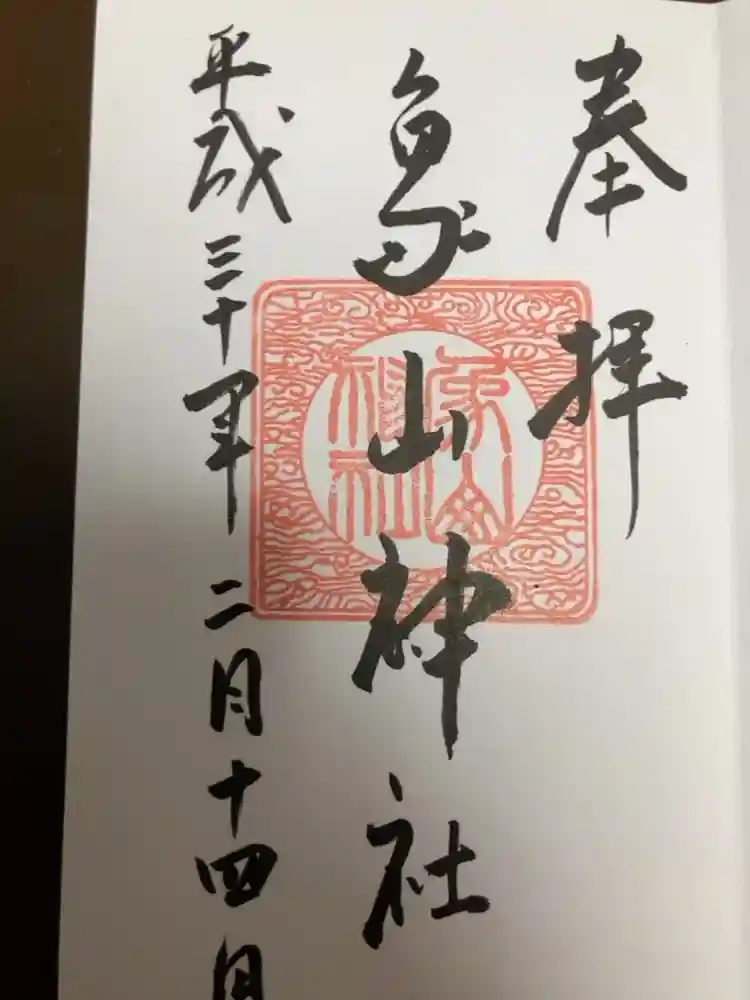 奉拝
象山神社
象山神社
平成三十年二月十四日